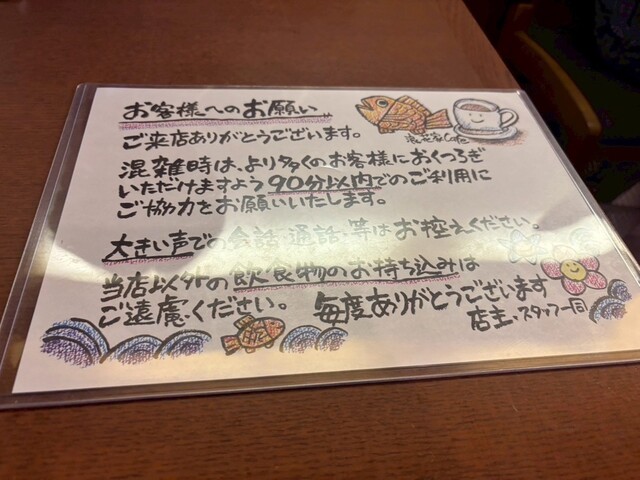 お客様へのお願い
ご来店ありがとうございます。
浪花家Cafe
混雑時は、より多くのお客様におくつろぎ
いただけますよう90分以内でのご利用に
ご協力をお願いいたします。
大きい声での会話、通話、等はお控えください。
当店以外の飲食物のお持ち込みは
ご遠慮ください。 毎度ありがとうございます
店主、スタッフ一同